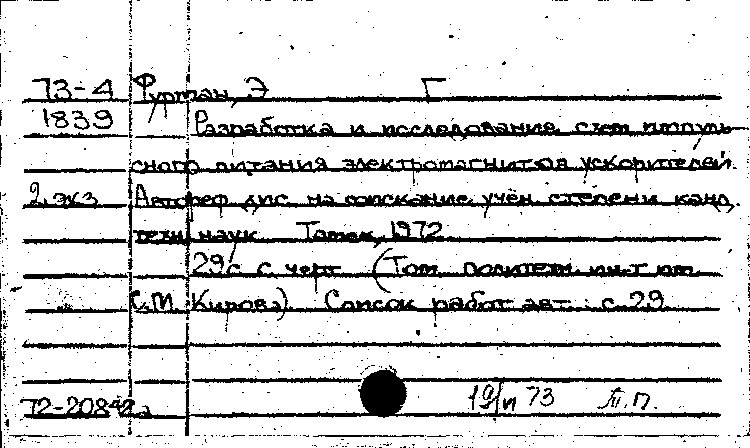 73-4 Фурман, Э Г
1839 Разработка и исследование схем импуль-
сного питания электромагнитов ускорителей.
2 экз Автореф дис. на соискание учен. степени канд.
техн. наук Томск, 1972
29с. с черт (Том. политехн. ин-т им.
С.М. Кирова) Список работ авт.: с. 29
72-208 19/VI 73 Т.П.